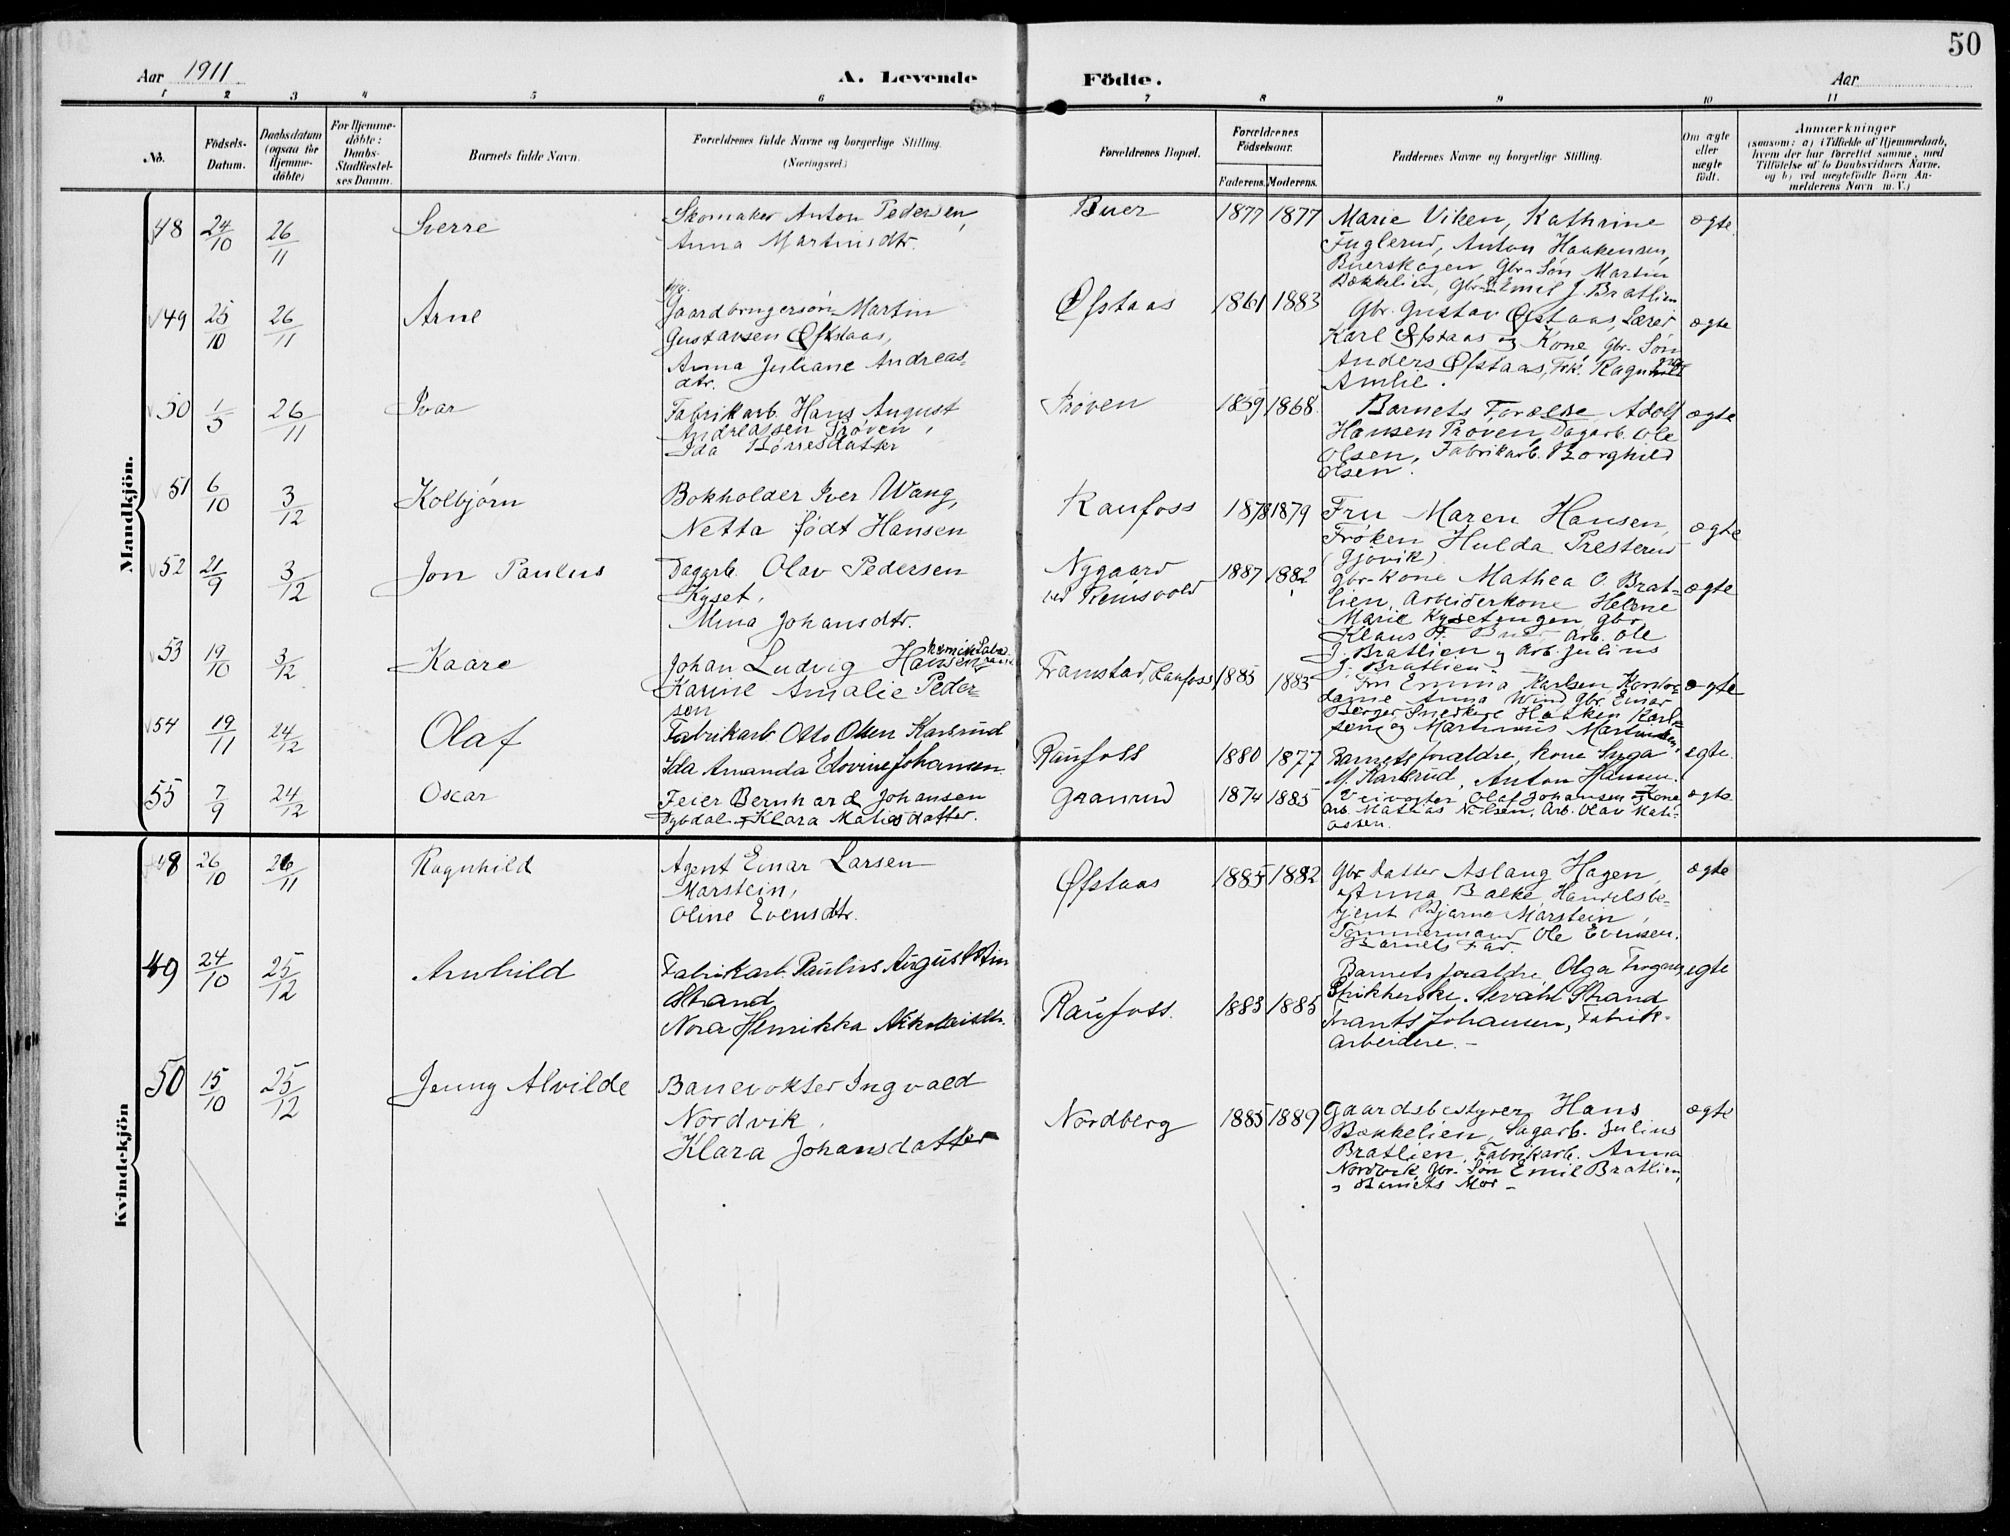 50
Aar 1911
A. Levende
Födte.
Aar
1 2 3 4 5 6 7 8 9 10 11
No.
Födsels-
Datum.
Daabsdatum
(ogsaa for
Hjemme-
döbte)
For Hjemme-
döbte:
Daabs-
Stadfæstel-
ses Datum.
Barnets fulde Navn.
Forældrenes fulde Navne og borgerlige Stilling.
(Næringsvei.)
Forældrenes Bopæl.
Forældrenes
Födselsaar.
Faderens. Moderens.
Faddernes Navne og borgerlige Stilling.
Om ægte
eller
uægte
födt.
Anmærkninger
(saasom: a) i Tilfælde af Hjemmedaab,
hvem der har forrettet samme, med
Tilföielse af to Daabsvidners Navne.
og b) ved uægtefödte Börn An-
melderens Navn m. V.)
Mandkjön.
48 24/10 26/11 Sverre
Skomaker Anton Pedersen,
Anna Martinsdtr.
Buer 1877 1877
Marie Viken, Kathrine
Fuglerud, Anton Haakensen,
Buerskogen, Gbr. Søn Martin
Bækkelien, Gbr. S. Emil J. Bratlien
ægte.
49 25/10 26/11 Arne
Gaardbrugersøn Martin
Gustavsen Øfstaas,
Anna Juliane Andreas-
dtr.
Øfstaas 1861 1883
Gbr. Gustav Øfstaas, Lærer
Karl Øfstaas og Kone, Gbr. Søn
Anders Øfstaas, Frk. Ragnhild
Amlie.
ægte
50 1/5 26/11 Ivar
Fabrikarb. Hans August
Andreassen Prøven,
Ida Børresdatter
Prøven 1859 1868
Barnets Forældre Adolf
Hansen Prøven, Dagarb. Ole
Olsen, Fabrikarb. Borghild
Olsen.
ægte
51 6/10 3/12 Kolbjørn
Bokholder Iver Wang,
Netta født Hansen
Raufoss 1878 1879
Fru Maren Hansen,
Frøken Hulda Presterud
(Gjøvik)
ægte
52 21/9 3/12 Jon Paulus
Dagarb. Olav Pedersen
Kyset,
Mina Johansdtr.
Nygaard
ved Reinsvold 1887 1882
Gbr. kone Mathea O. Brat-
lien, Arbeiderkone Helene
Marie Kysetengen, gbr
Klaus F. Buer Arb. Ole
J. Bratlien og Arb. Julius
J. Bratlien.
ægte
53 19/10 3/12 Kaare
Johan Ludvig Hansen
Karine Amalie Peder-
sen
Framstad, Raufoss 1885 1885
Fru Emma Karlsen,
Anna Wind Gbr. Einar
Berger Snedker Haaken Karl-
sen og Martinius Martinsen.
ægte
54 19/11 24/12 Olaf
Fabrikarb Otto Olsen Karsrud
Ida Amanda Edovine Johansen
Raufoss 1880 1877
Barnets foraldre, kone
M. Karlsrud, Anton Hansen.
egte.
55 7/9 24/12 Oscar
Feier Bernhard Johansen
Dybdal og Klara Matiasdatter.
Granrud 1874 1885
Veivogter Olaf Johansen og Kone
Arb. Mathias Nilsen, Arb. Olav Mati-
assen.
ægte
Kvindekjön
48 26/10 26/11 Ragnhild
Agent Einar Larsen
Marstein,
Oline Evensdtr.
Øfstaas 1885 1882
Gbr. Datter Aslaug Hagen,
Anna Balke, Handelsbe-
tjent Bjarne Marstein,
Tømmermand Ole Evensen.
Barnets Far.
ægte
49 24/10 25/12 Arnhild
Fabrikarb. Paulus Augustin
Strand
Nora Henrikka Nikolaisdtr.
Raufoss. 1883 1885
Barnets foraldre, Olga
Strikherske. Sevald Strand
Frants Johansen, Fabrik-
arbeidere. -
egte
50 15/10 25/12 Jenny Alvilde
Banevokter Ingvald
Nordvik,
Klara Johansdatter
Nordberg 1885 1889
Gaardsbestyrer Hans
Bækkelien, Sagarb. Julius
Bratlien, Fabrikarb. Anna
Nordvik, Gbr. Søn Emil Bratlien,
og Barnets Mor -
ægte